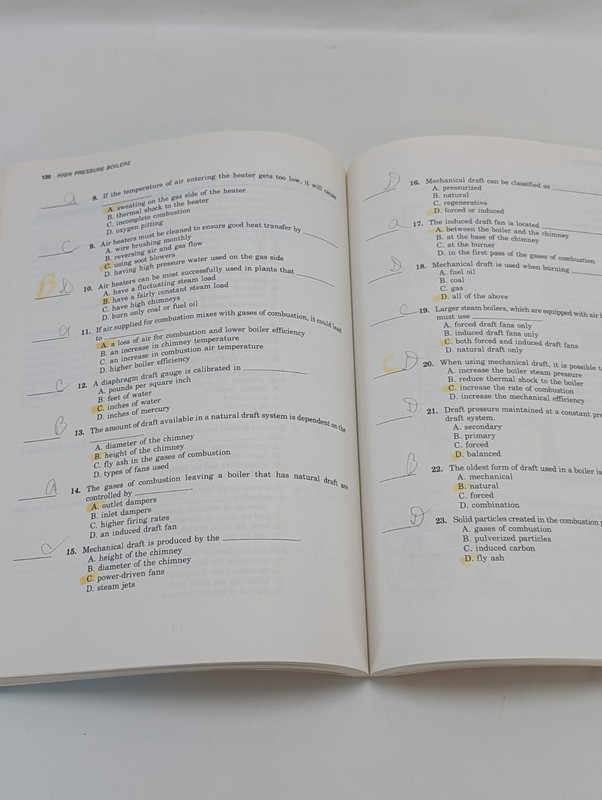 120 HIGH PRESSURE BOILERS
a 8. If the temperature of air entering the heater gets too low, it will cause
A. sweating on the gas side of the heater
B. thermal shock to the heater
C. incomplete combustion
D. oxygen pitting
C 9. Air heaters must be cleaned to ensure good heat transfer by
A. wire brushing monthly
B. reversing air and gas flow
C. using soot blowers
D. having high pressure water used on the gas side
B D 10. Air heaters can be most successfully used in plants that
A. have a fluctuating steam load
B. have a fairly constant steam load
C. have high chimneys
D. burn only coal or fuel oil
a 11. If air supplied for combustion mixes with gases of combustion, it could lead
to
A. a loss of air for combustion and lower boiler efficiency
B. an increase in chimney temperature
C. an increase in combustion air temperature
D. higher boiler efficiency
C 12. A diaphragm draft gauge is calibrated in
A. pounds per square inch
B. feet of water
C. inches of water
D. inches of mercury
B 13. The amount of draft available in a natural draft system is dependent on the
A. diameter of the chimney
B. height of the chimney
C. fly ash in the gases of combustion
D. types of fans used
A 14. The gases of combustion leaving a boiler that has natural draft are
controlled by
A. outlet dampers
B. inlet dampers
C. higher firing rates
D. an induced draft fan
C 15. Mechanical draft is produced by the
A. height of the chimney
B. diameter of the chimney
C. power-driven fans
D. steam jets
D 16. Mechanical draft can be classified as
A. pressurized
B. natural
C. regenerative
D. forced or induced
a 17. The induced draft fan is located
A. between the boiler and the chimney
B. at the base of the chimney
C. at the burner
D. in the first pass of the gases of combustion
D 18. Mechanical draft is used when burning
A. fuel oil
B. coal
C. gas
D. all of the above
C 19. Larger steam boilers, which are equipped with air
must use
A. forced draft fans only
B. induced draft fans only
C. both forced and induced draft fans
D. natural draft only
C D 20. When using mechanical draft, it is possible
A. increase the boiler steam pressure
B. reduce thermal shock to the boiler
C. increase the rate of combustion
D. increase the mechanical efficiency
D 21. Draft pressure maintained at a constant
draft system.
A. secondary
B. primary
C. forced
D. balanced
B 22. The oldest form of draft used in a boiler is
A. mechanical
B. natural
C. forced
D. combination
D 23. Solid particles created in the combustion
A. gases of combustion
B. pulverized particles
C. induced carbon
D. fly ash